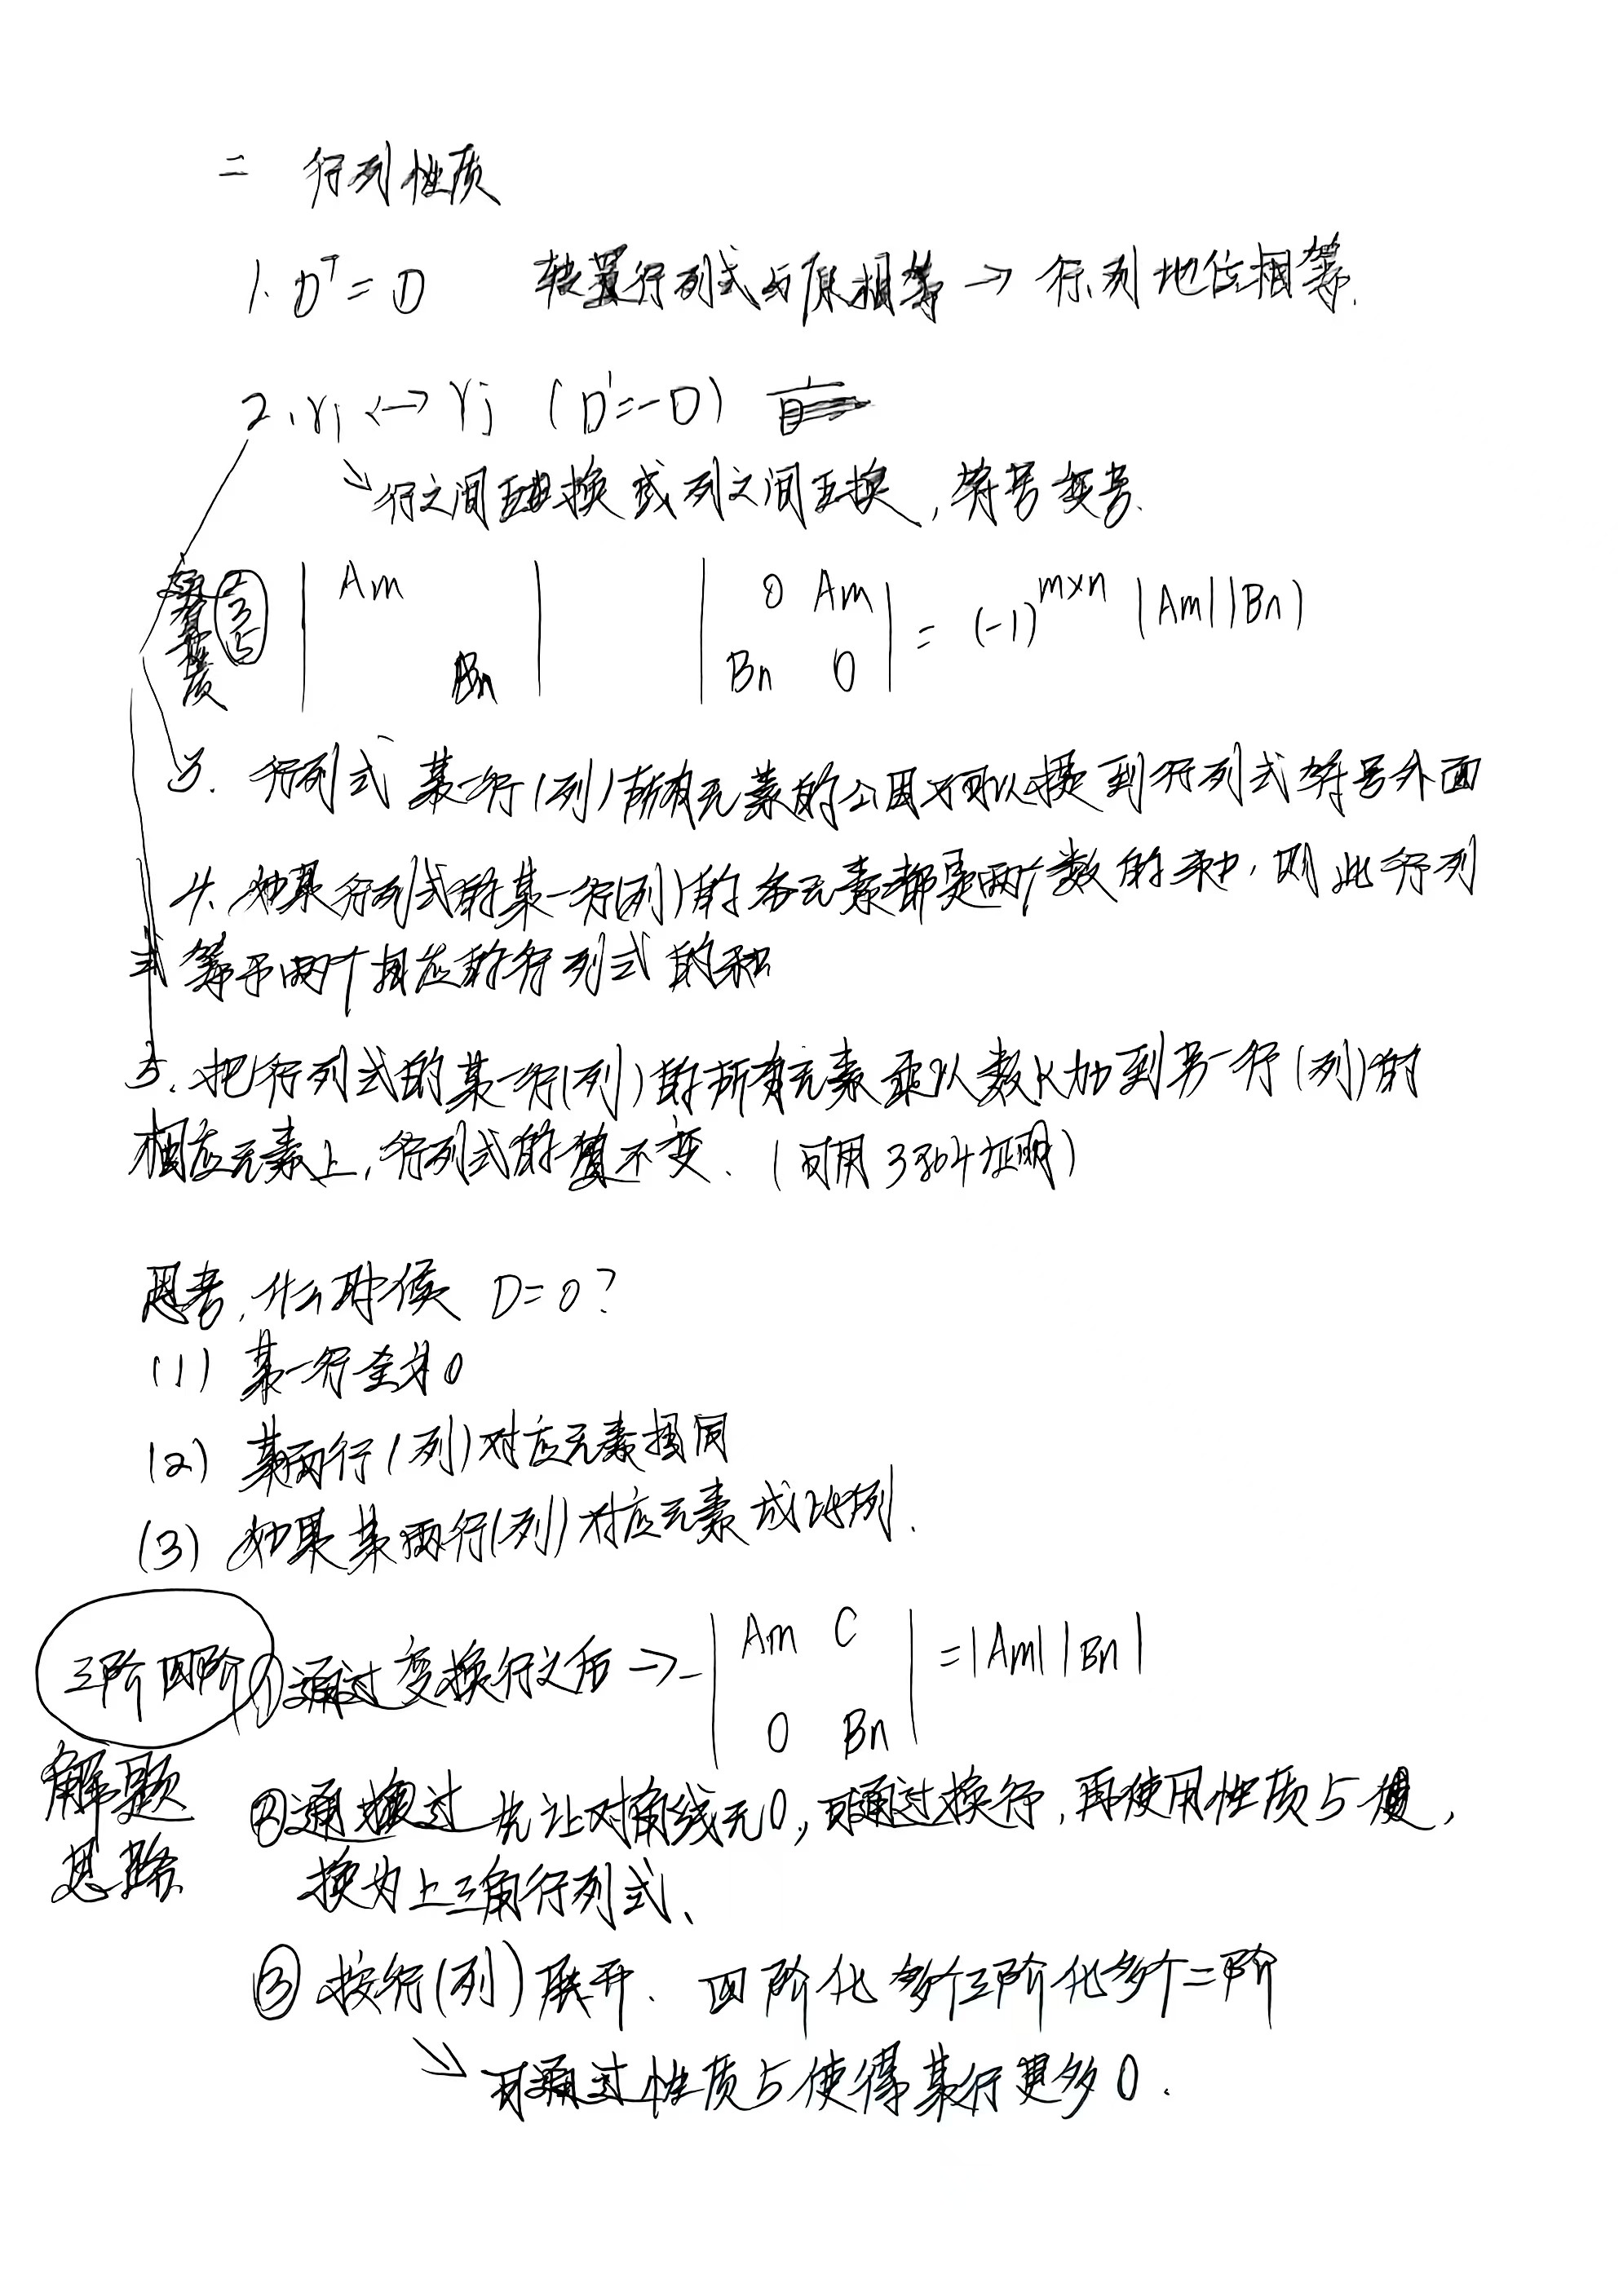 二 行列性质
1. Dᵀ = D 转置行列式与原相等 → 行、列地位相等.
2. ri ↔ rj (D'=-D)
↘行之间互换或列之间互换, 符号变号.
2 3 5
| Am Bn | | 0 Am Bn 0 | = (-1)^{m×n} |Am||Bn|
3. 行列式某一行(列)所有元素的公因子可以提到行列式符号外面
4. 如果行列式的某一行(列)的各元素都是两个数的和, 则此行列
式等于两个相应的行列式的和
5. 把行列式的某一行(列)的所有元素乘以数k加到另一行(列)的
相应元素上, 行列式的值不变. (可用3和4证明)
思考, 什么时候 D=0?
(1) 某一行全为0
(2) 某两行(列)对应元素相同
(3) 如果某两行(列)对应元素成比例.
三阶四阶
解题
思路
①通过变换行之后 → - | Am C 0 Bn | = |Am||Bn|
②通过 先让对角线无0, 可通过换行, 再使用性质5,
换为上三角行列式、
③ 按行(列)展开. 四阶化多个三阶化多个二阶
↘ 可通过性质5使得某行更多0.